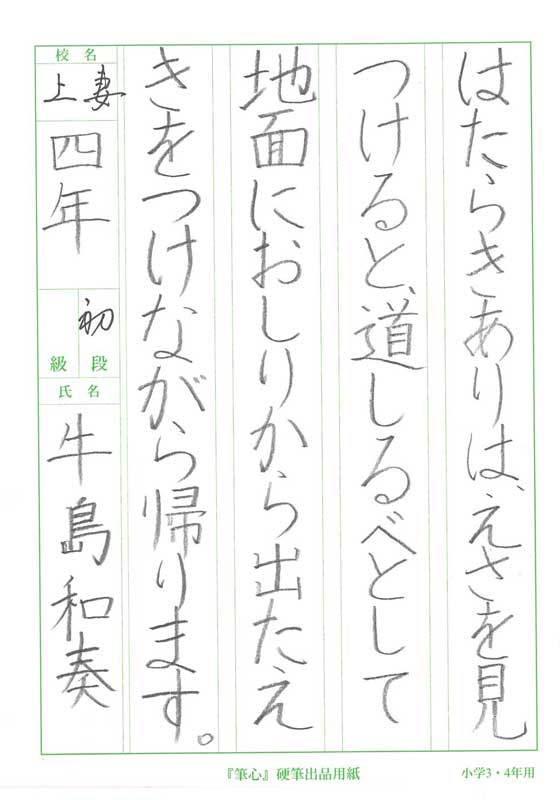 はたらきありは、えさを見
つけると、道しるべとして
地面におしりから出たえ
きをつけながら帰ります。
校名
上妻
四年
初
級 段
氏名
牛島和奏
『筆心』硬筆出品用紙
小学3・4年用